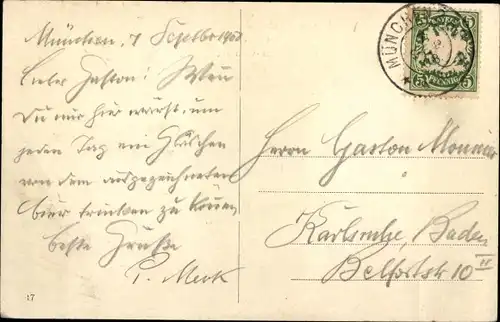 München, 7 Septbr 190
Lieber Gaston! Wenn
Du nur hier wärst, um
jeden Tag ein Gläschen
von dem ausgezeichneten
bier trinken zu können
beste Grüße
P. Merk
17
MÜNCHEN
BAYERN
5 5
5 5
PFENNIG
Herrn Gaston Monnier
Karlsruhe, Baden
Belfortstr 10 II